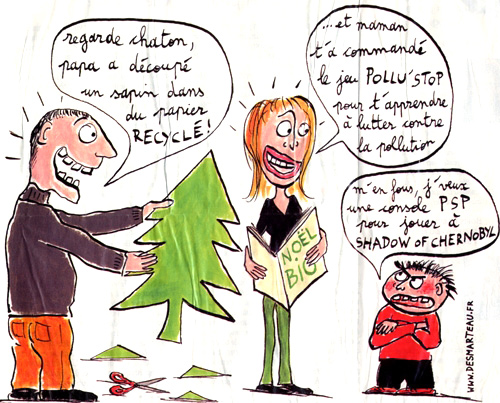 regarde chaton,
papa a découpé
un sapin dans
du papier
RECYCLÉ!
...et maman
t'a commandé
le jeu POLLU'STOP
pour t'apprendre
à lutter contre
la pollution
m'en fous, j'veux
une console PSP
pour jouer à
SHADOW OF CHERNOBYL
NOËL
BIO
WWW.DESMARTEAU.FR